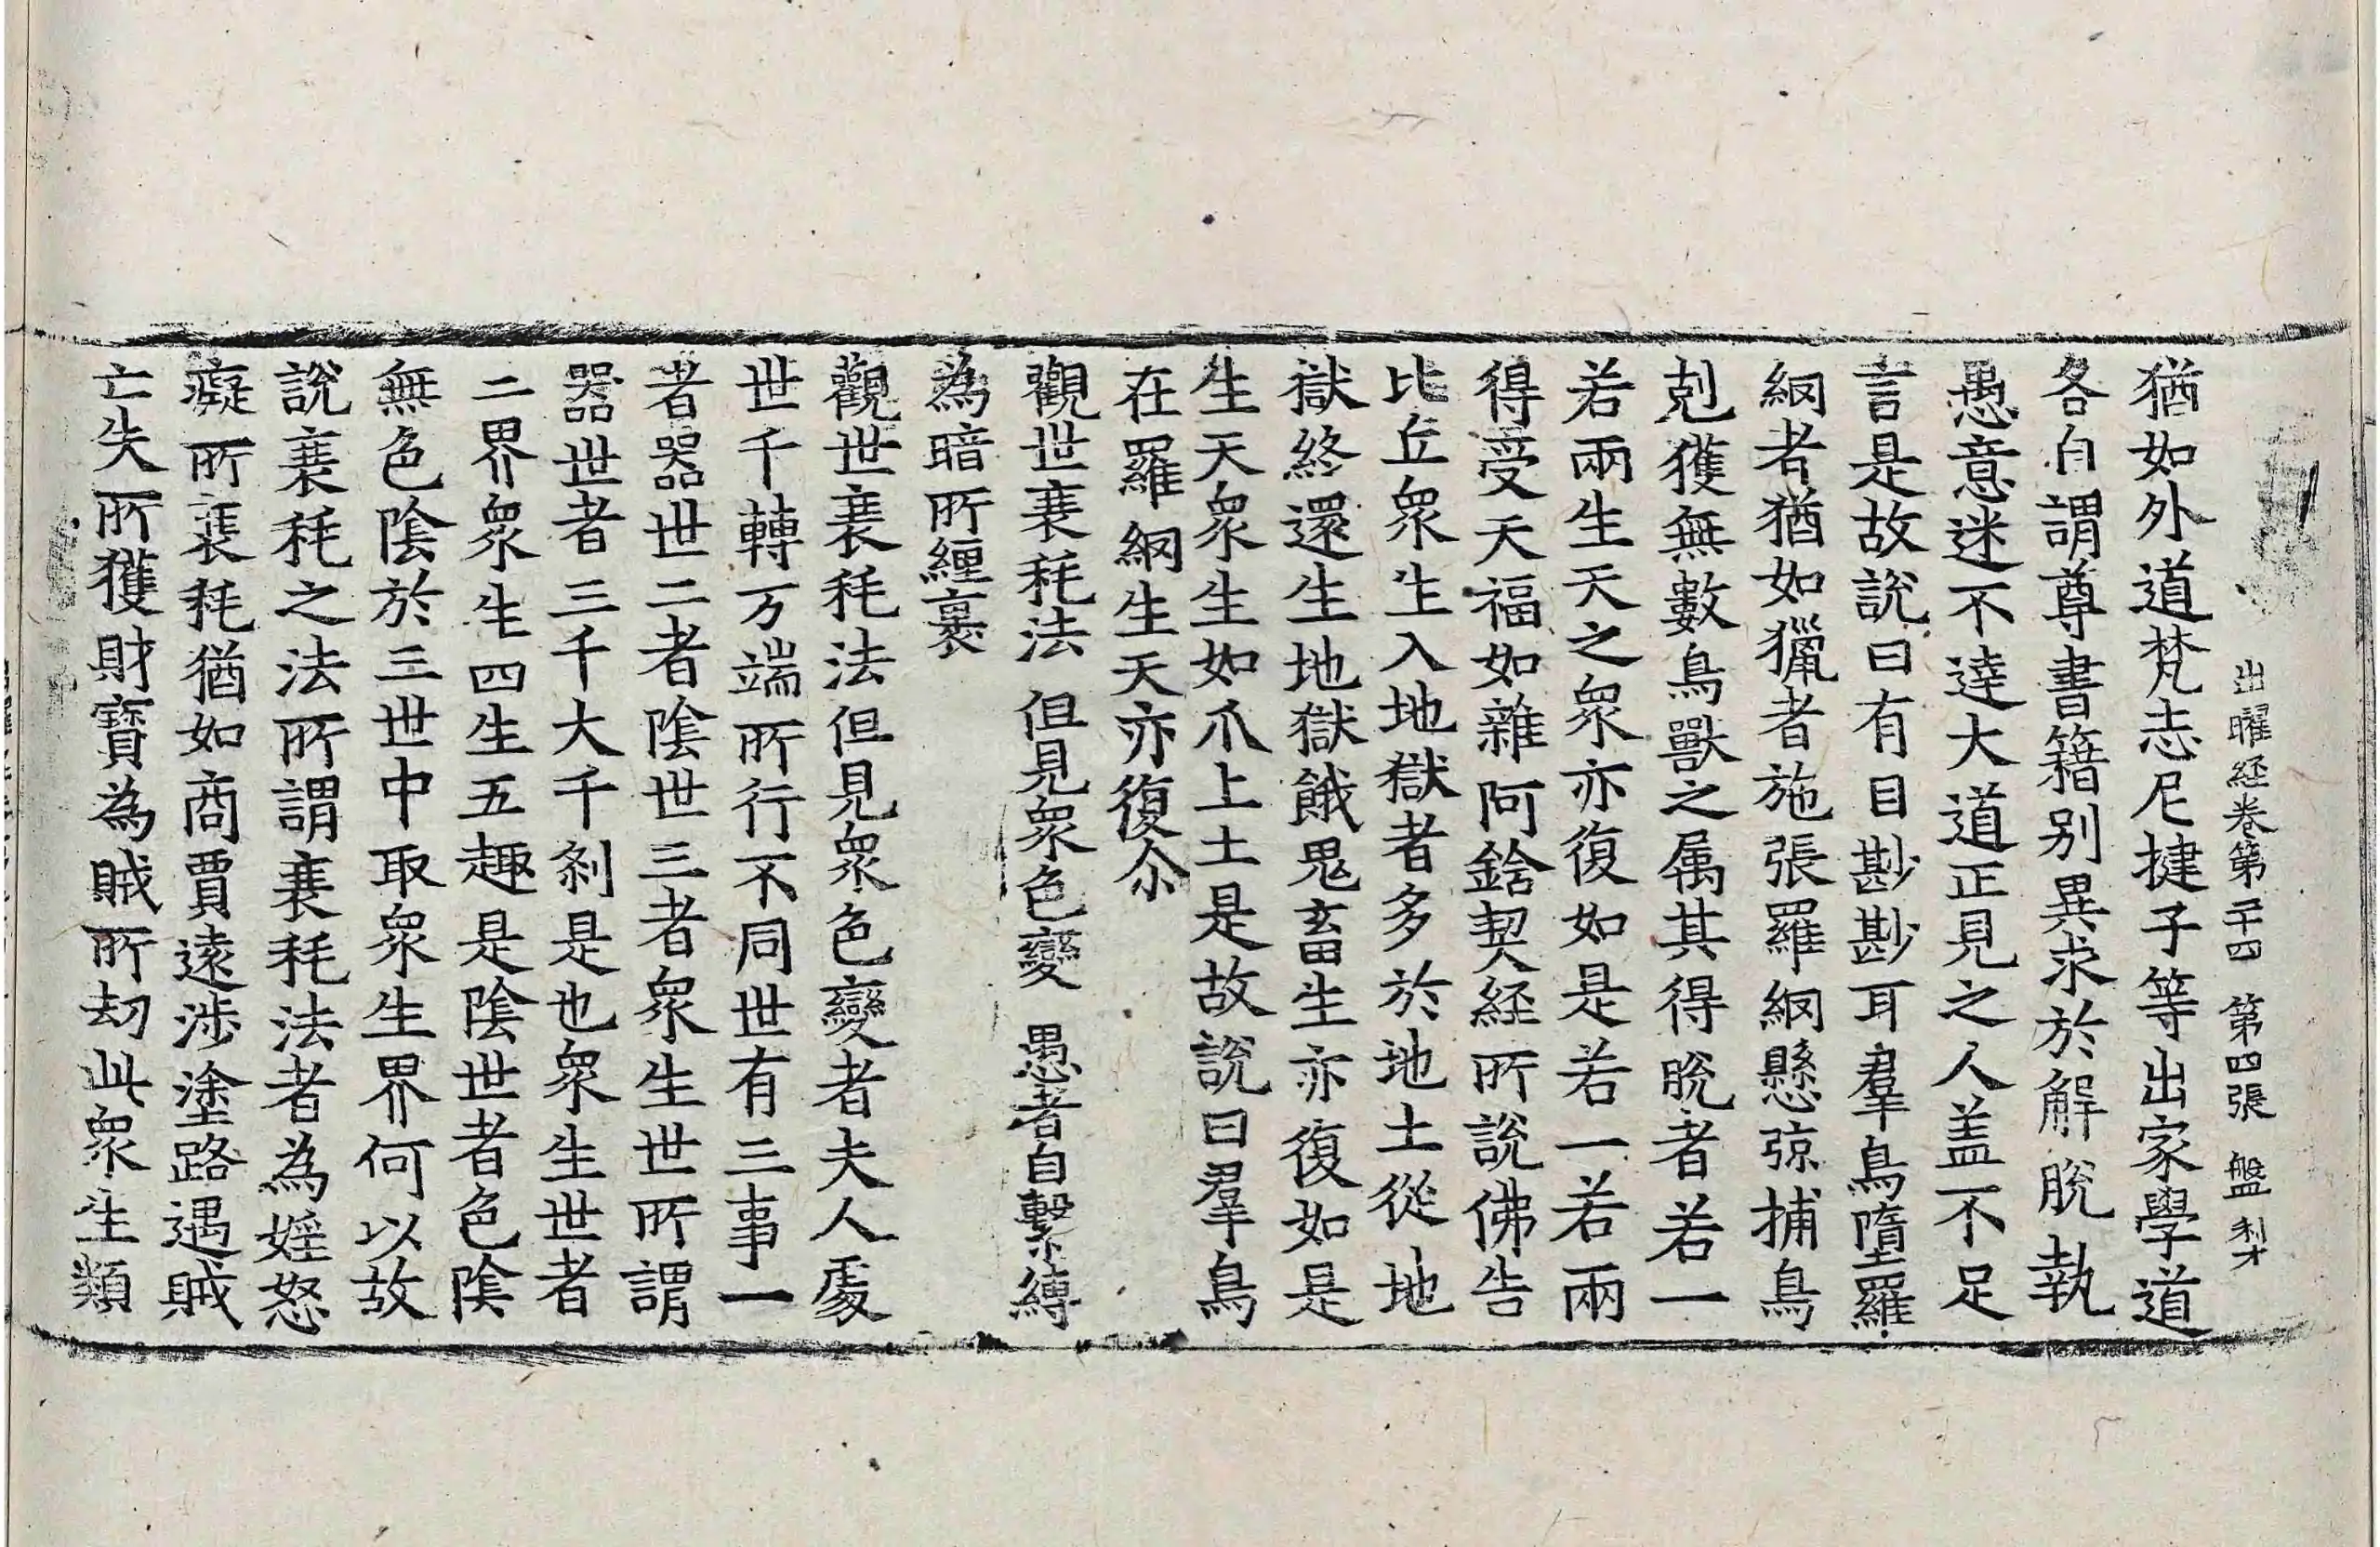 出曜経卷第二十四 第四張 盤 利才
猶如外道梵志尼揵子等出家學道
各自謂尊書籍别異求於解脫執
愚意迷不達大道正見之人盖不足
言是故說曰有目尠尠耳羣鳥墮羅
網者猶如獵者施張羅網懸弶捕鳥
剋獲無數鳥獸之属其得脫者若一
若兩生天之衆亦復如是若一若兩
得受天福如雜阿鋡契経所說佛告
比丘衆生入地獄者多於地土從地
獄終還生地獄餓鬼畜生亦復如是
生天衆生如爪上土是故說曰羣鳥
在羅網生天亦復尒
觀世衰秏法 但見衆色變 愚者自繫縛
為暗所纒裹
觀世衰秏法但見衆色變者夫人處
世千轉万端所行不同世有三事一
者器世二者陰世三者衆生世所謂
器世者三千大千剎是也衆生世者
二界衆生四生五趣是陰世者色陰
無色陰於三世中取衆生界何以故
說衰秏之法所謂衰秏法者為婬怒
癡所衰秏猶如商賈遠涉塗路遇賊
亡失所獲財寶為賊所刼此衆生類